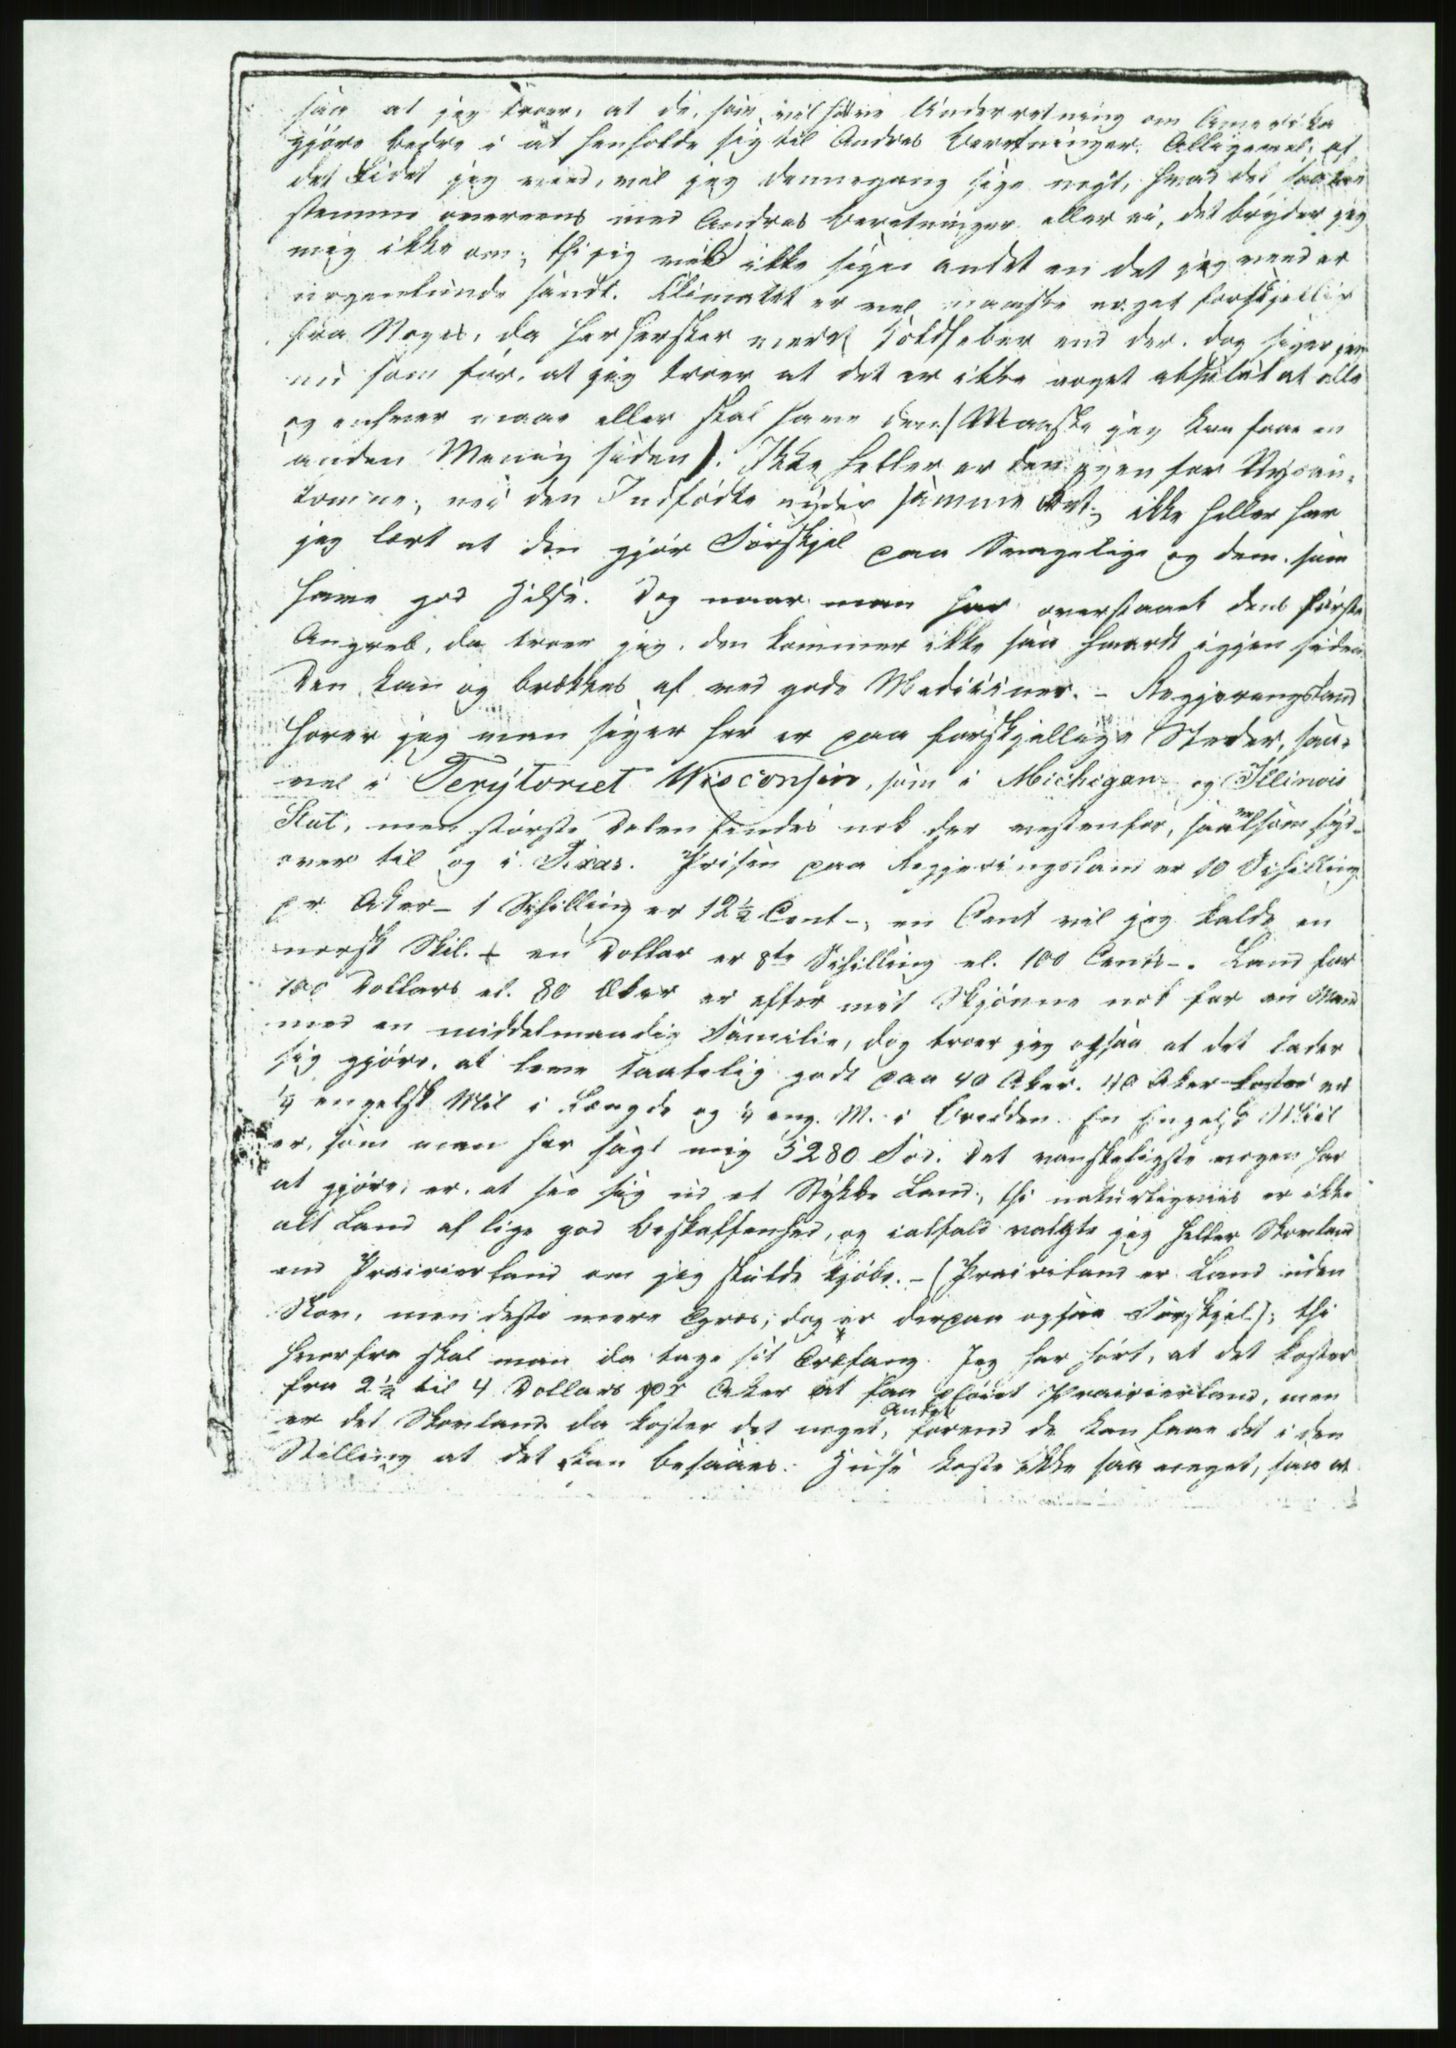 saa at jeg troer, at de, som vil have Underretning om Amerika
gjøre bedre i at henholde sig til Andres Beretninger. Alligevel, af
det Lidet jeg veed, vil jeg dennegang sige noget, hvad det saa kan
stemme overeens med Andres Beretninger eller ei, det bryder jeg
mig ikke om; thi jeg vil ikke sige andet en det jeg veed er
nogenlunde sandt. Climatet er vel maaske noget forskjellig
fra Noges, da her hersker meest Koldfeber end der. dog siger jeg
nu som før, at jeg troer at det er ikke noget absolut at alle
og enhver maae eller skal have den (Maaske jeg kan faae en
anden Mening siden). Ikke heller er den egen for Nysan-
komne; nei den Indfødte nyder samme Ret; ikke heller har
jeg lært at den gjør Forskjel paa Svagelige og dem som
have god Helse. Dog naar man har overstaaet dens første
Angreb, da troer jeg, den kommer ikke saa haardt igjen siden.
Den kan og brækkes af ved gode Mediciner. - Regjeringsland
hører jeg man siger her er paa forskjellige Steder, saa-
vel i Terytoriet Wisconsin, som i Michigan og Illinois
Stat, men største Delen findes nok der vestenfor, saavelsom syd-
over til og i Texas. Prisen paa Regjeringsland er 10 Schilling
pr Aker - 1 Schilling er 12½ Cent -, en Cent vil jeg kalde en
norsk Skil. + en Dollar er 8te Schilling el. 100 Cents -. Land for
100 Dollars el. 80 Aker er efter mit Skjønne nok for en Mand
med en middelmaadig Familie, dog troer jeg ogsaa at det lader
sig gjøre, at leve taalelig godt paa 40 Aker. 40 Aker er
¼ engelsk Mil i Længde og ¼ eng. M. i Bredden. En Engelsk Miil
er, som man har sagt mig 5280 Fod. Det vanskeligste nogen har
at gjøre, er, at see sig ud et Stykke Land, thi naturligviis er ikke
alt Land af lige god Beskaffenhed, og ialfald valgte jeg heller Skovland
end Prairierland om jeg skulde kjøbe. - (Prairiland er Land uden
Skov, men desto mere Græs; dog er derpaa ogsaa Forskjel); thi
hvorfra skal man da tage sit Træfang. Jeg har hørt, at det koster
fra 2½ til 4 Dollars pr Aker at faa pløiet Prairierland, men
er det Skovland da koster det noget Andet, forend de kan faae det i den
Stilling at det kan besaaes. Huse koste ikke saa meget, saa at